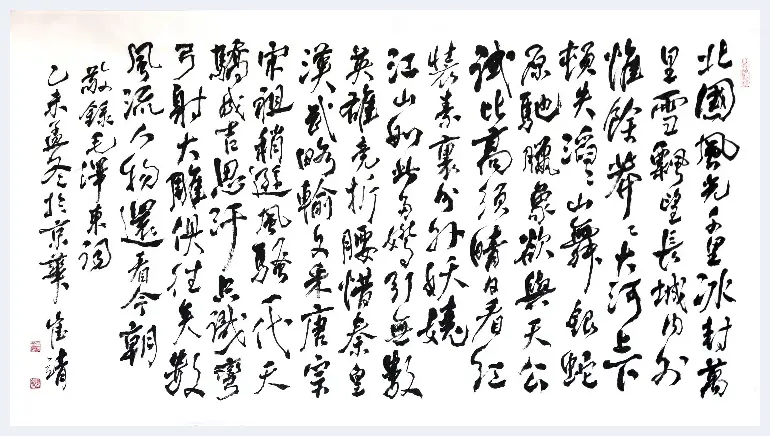 北國風光千里冰封萬
里雪飄望長城内外
惟餘莽〻大河上下
頓失滔〻山舞銀蛇
原馳臘象欲與天公
試比高須晴日看红
裝素裹分外妖嬈
江山如此多嬌引無數
英雄竞折腰惜秦皇
漢武略輸文采唐宗
宋祖稍遜風騷一代天
驕成吉思汗只識彎
弓射大雕俱往矣數
風流人物還看今朝
敬録毛澤東詞
乙未孟冬於京華 崔